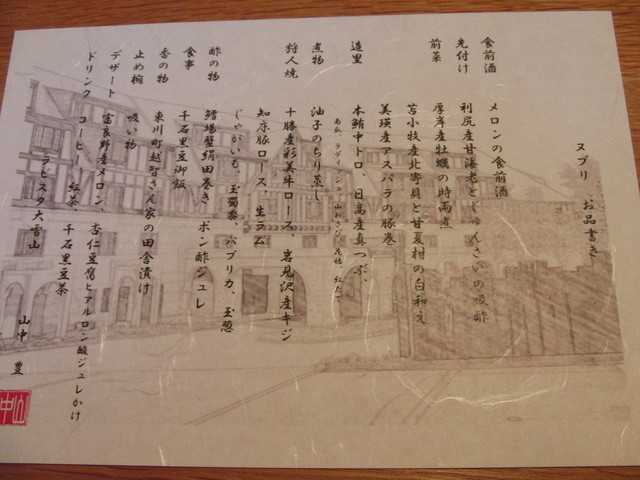 ヌプリ お品書き
食前酒 メロンの食前酒
先付け 利尻産甘海老とじゅんさいの吸酢
前菜 厚岸産牡蠣の時雨煮
苫小牧産北寄貝と甘夏村の白和え
美瑛産アスパラの豚巻
造里 本鮪中トロ、日高産真つぶ、
南瓜、ラディッシュ、山わさび、花穂、紅たで
煮物 油子のちり蒸し
狩人焼 十勝産彩美牛ロース、岩見沢産キジ
知床豚ロース、生ラム
じゃがいも、玉蜀黍、パプリカ、玉葱
酢の物 鱈場蟹絹田巻き、ポン酢ジュレ
食事 千石黒豆御飯
香の物 東川町越智さん家の田舎漬け
止め椀 吸い物
デザート 富良野産メロン、杏仁豆腐ヒアルロン酸ジュレかけ
ドリンク コーヒー、紅茶、千石黒豆茶
ラビスタ大雪山
山中 豊